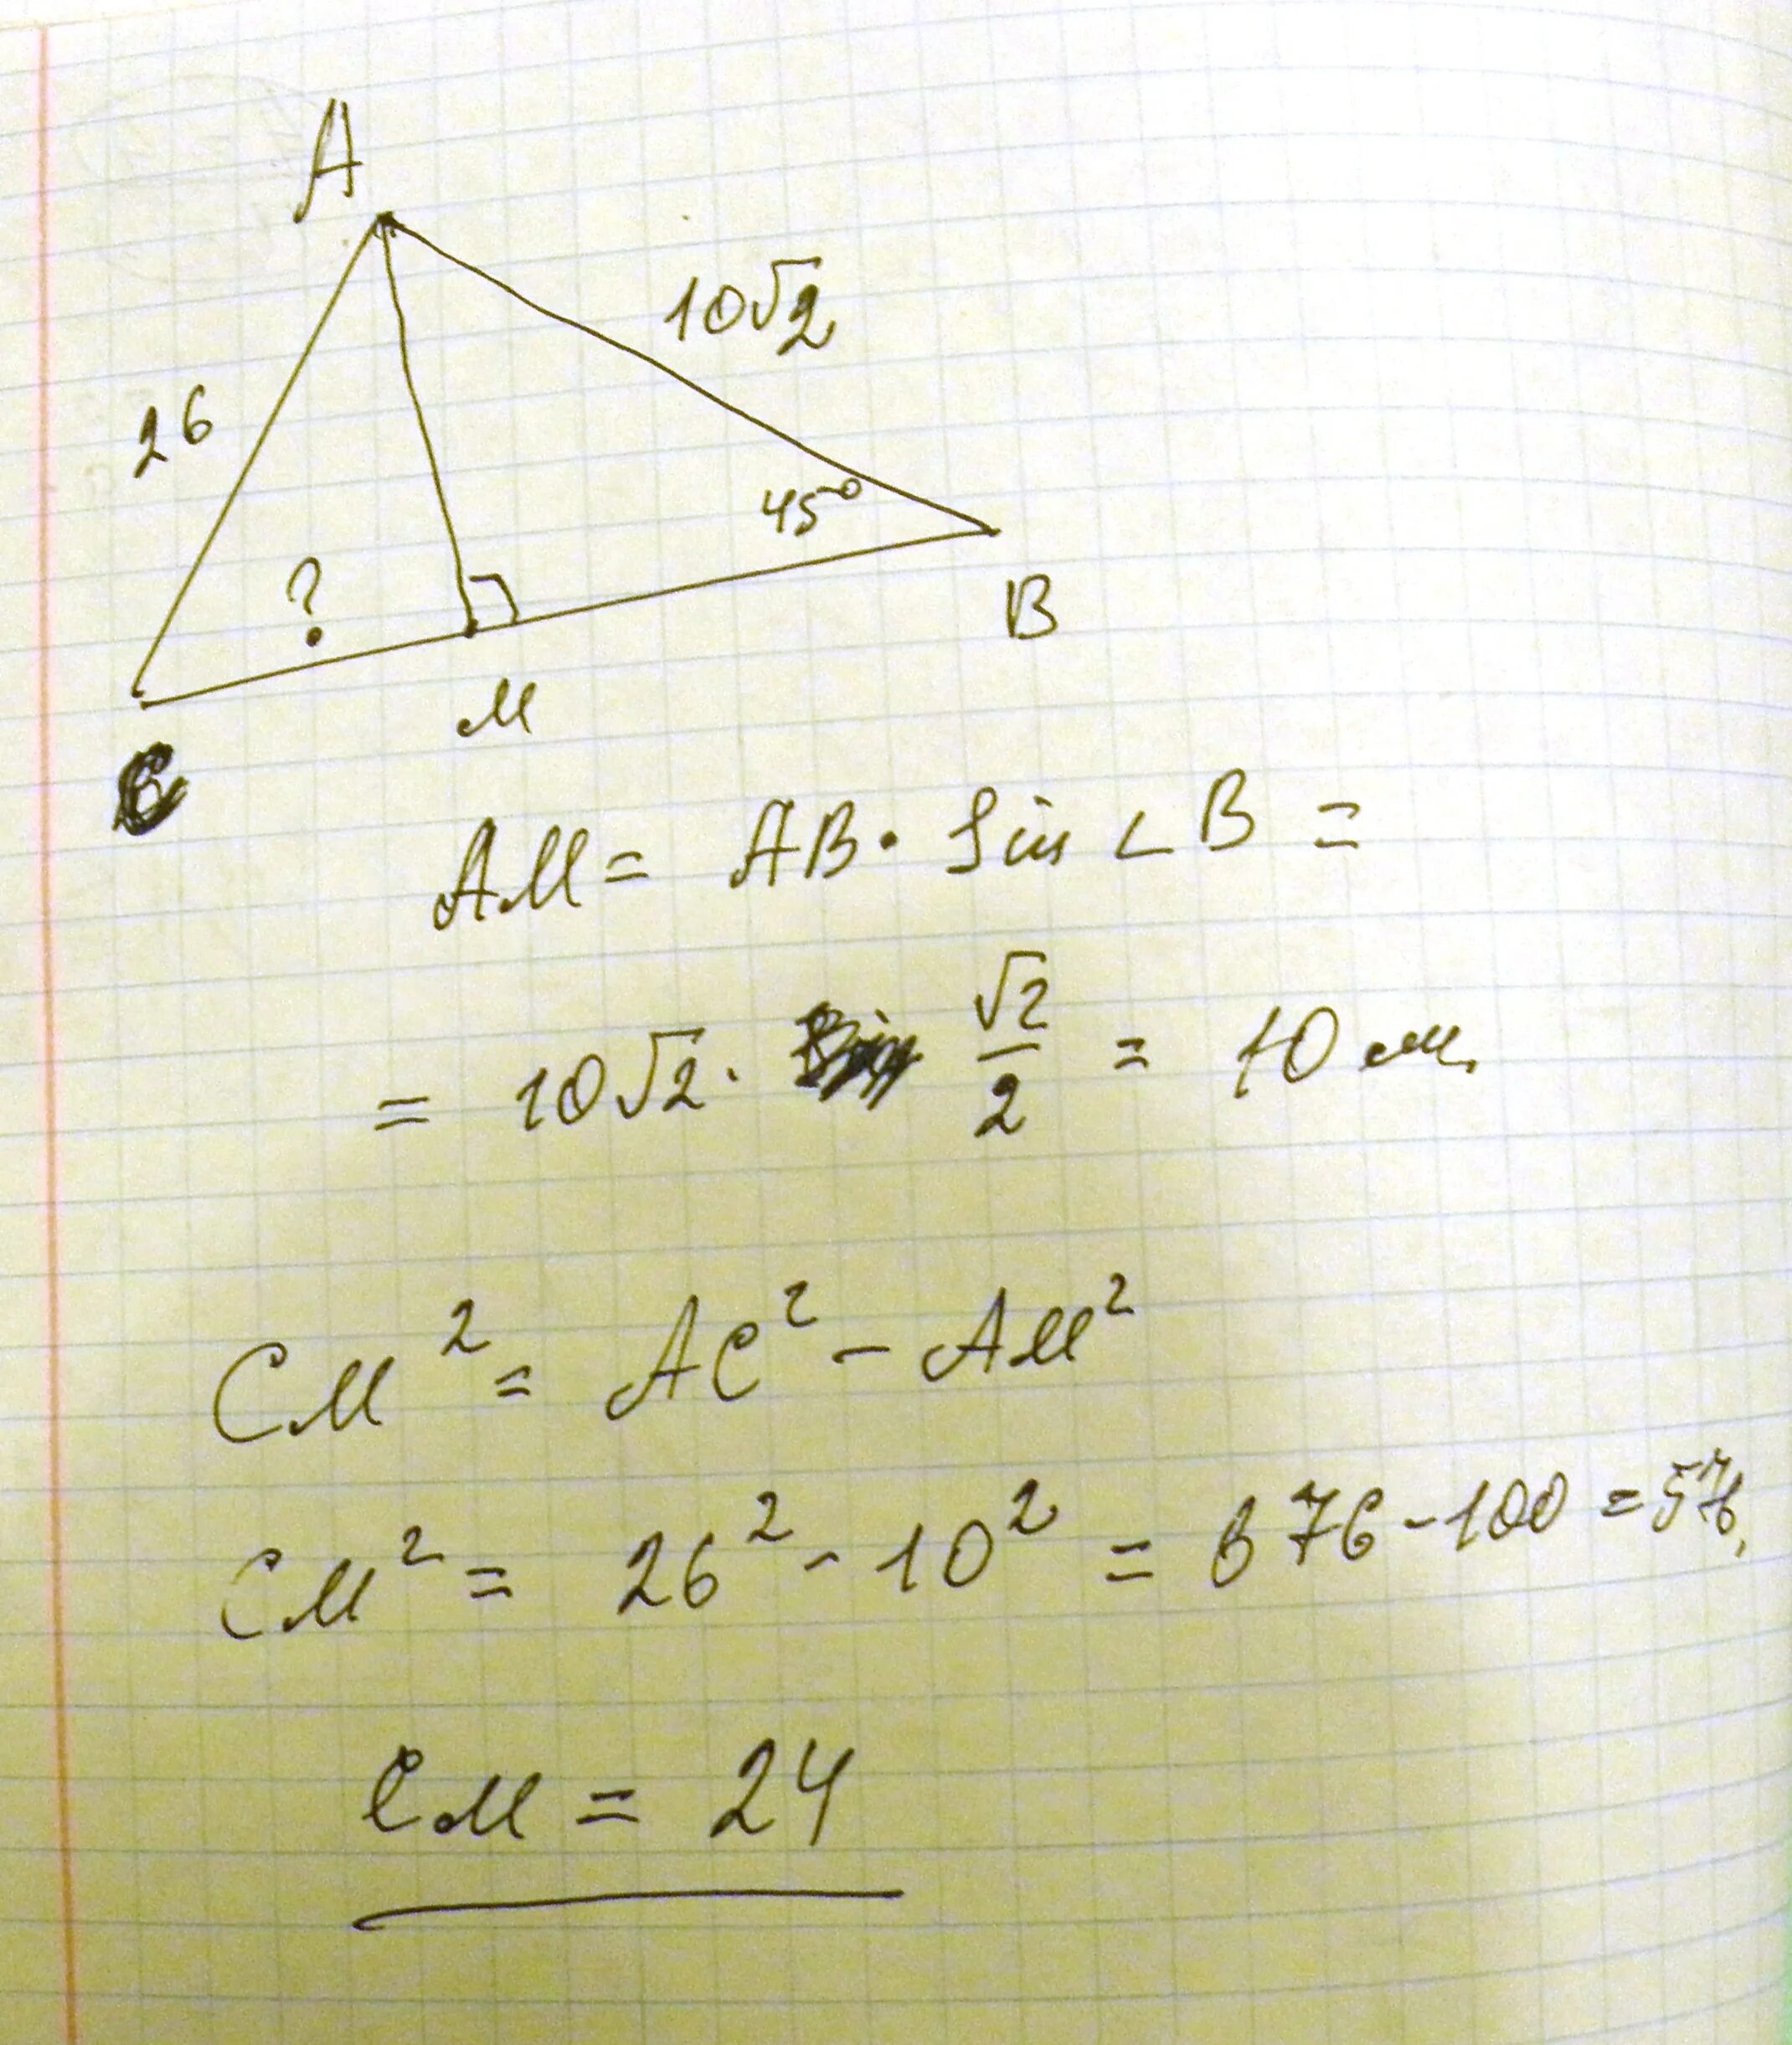 A
10√2
26
45°
?
B
M
C
AM = AB · Sin ∠B =
= 10√2 · √2/2 = 10 м.
CM² = AC² - AM²
CM² = 26² - 10² = 676 - 100 = 576,
CM = 24